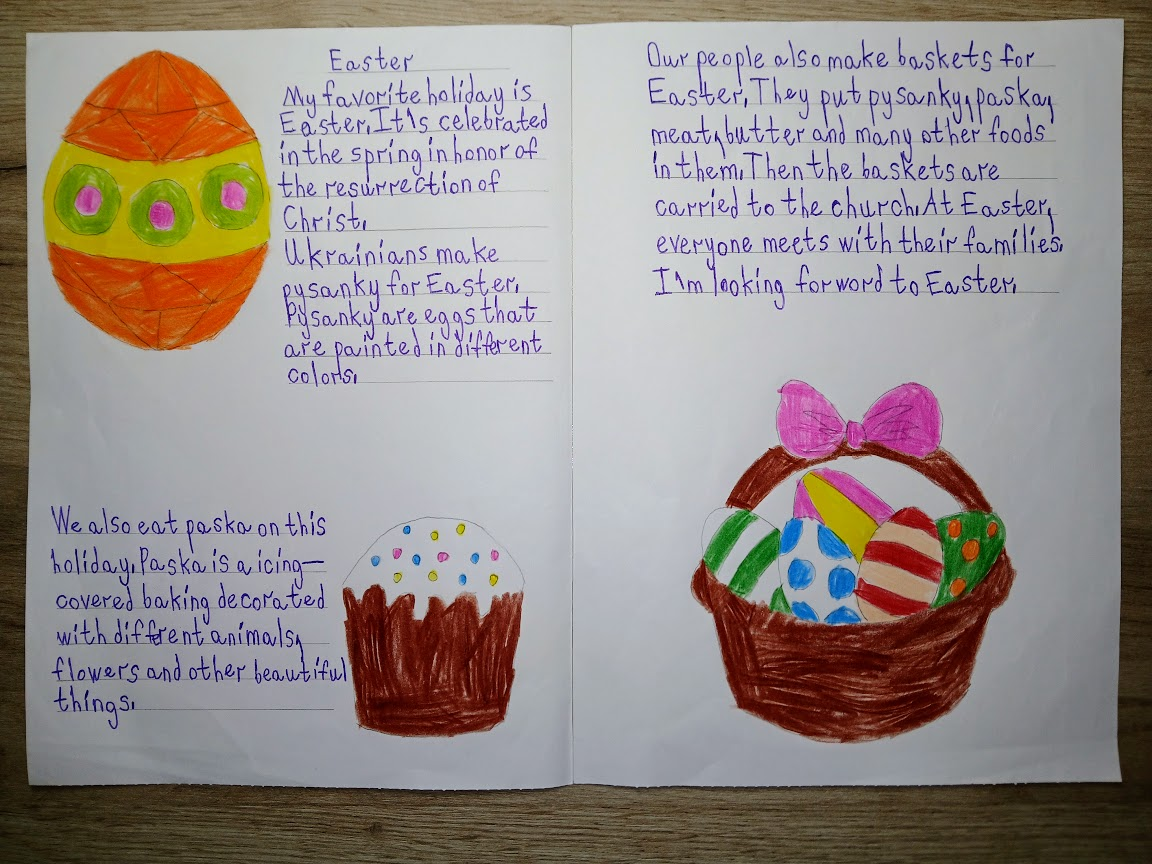 Easter
My favorite holiday is
Easter. It's celebrated
in the spring in honor of
the resurrection of
Christ.
Ukrainians make
pysanky for Easter.
Pysanky are eggs that
are painted in different
colors.
We also eat paska on this
holiday. Paska is a icing-
covered baking decorated
with different animals,
flowers and other beautiful
things.
Our people also make baskets for
Easter. They put pysanky, paska,
meat, butter and many other foods
in them. Then the baskets are
carried to the church. At Easter,
everyone meets with their families.
I'm looking forword to Easter.